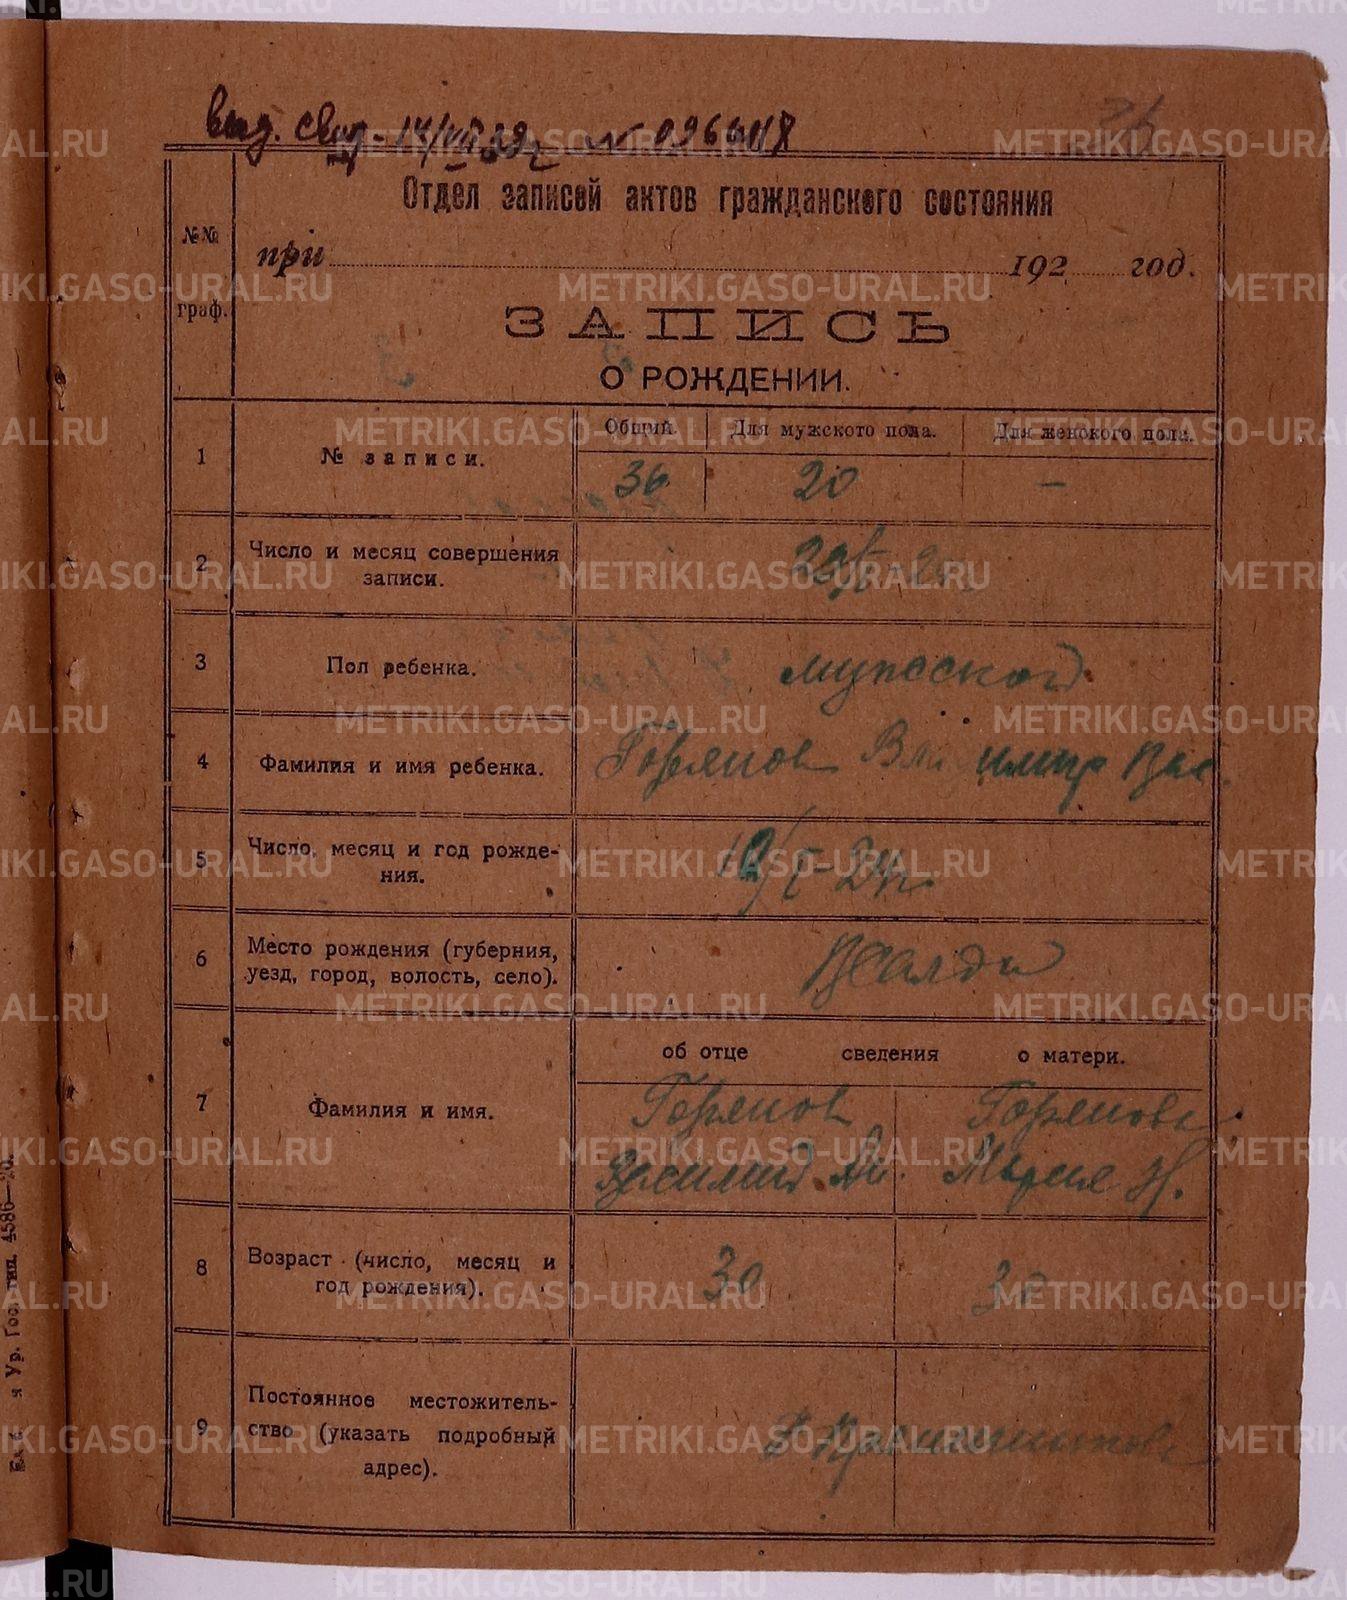 выд. свид. 14/VII 39г № 096618
36
Отдел записей актов гражданского состояния
№№ граф.
при 192 год.
ЗАПИСЬ
О РОЖДЕНИИ.
1 № записи. Общий. Для мужского пола. Для женского пола.
36 20 –
2 Число и месяц совершения
записи.
3 Пол ребенка. мужской
4 Фамилия и имя ребенка. Горянов Владимир Вас.
5 Число, месяц и год рожде-
ния. 10/I-24г.
6 Место рождения (губерния,
уезд, город, волость, село). В Салда
об отце сведения о матери.
7 Фамилия и имя. Горянов Горянова
Василий Мария Н.
8 Возраст (число, месяц и
год рождения). 30 30
9 Постоянное местожитель-
ство (указать подробный
адрес).
Ур. Гос. тип. 4586—20.
METRIKI.GASO-URAL.RU